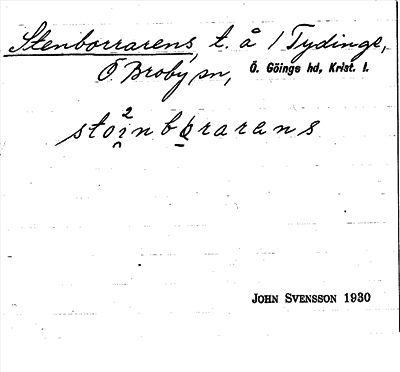 Stenborrarens, t. å 1 Tydinge,
Ö. Broby sn, Ö. Göinge hd, Krist. l.
sto2i̯nbo̱rarans
JOHN SVENSSON 1930